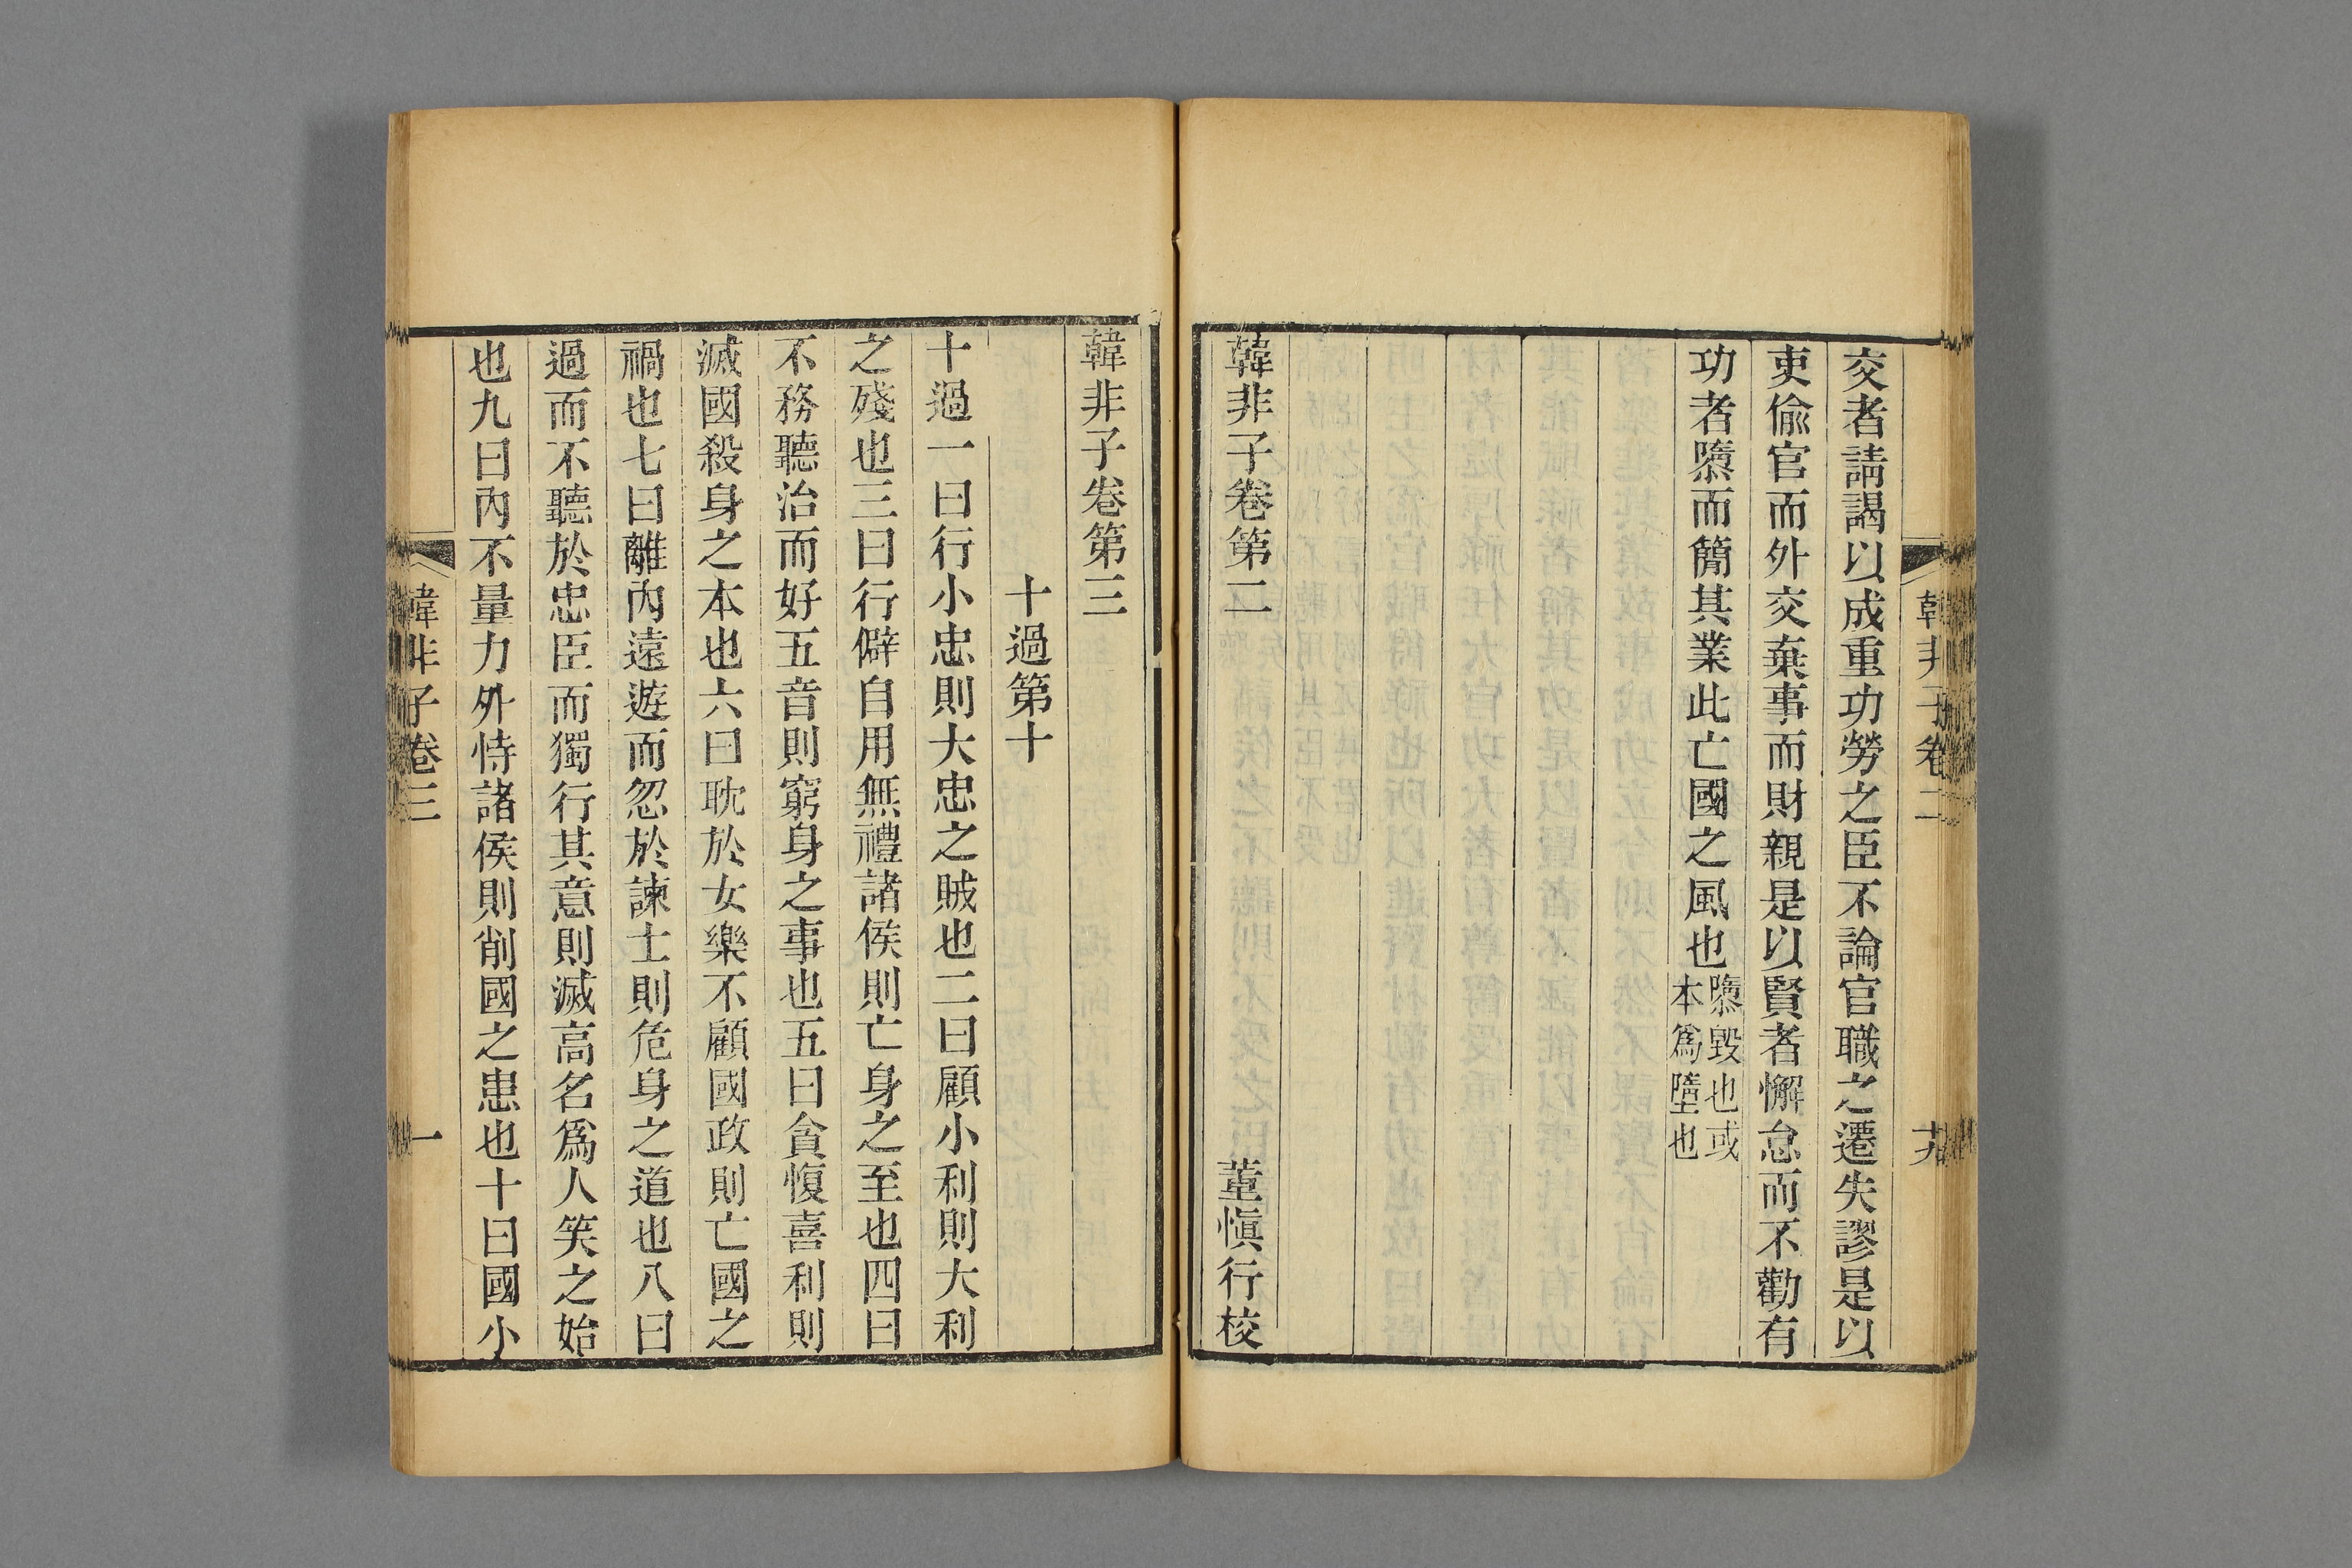 韓非子卷二
十九
交者請謁以成重功勞之臣不論官職之遷失謬是以
吏偷官而外交棄事而財親是以賢者懈怠而不勸有
功者隳而簡其業此亡國之風也隳毀也或
本爲墮也
韓非子卷第二
董愼行校
韓非子卷第三
十過第十
十過一曰行小忠則大忠之賊也二曰顧小利則大利
之殘也三曰行僻自用無禮諸侯則亡身之至也四曰
不務聽治而好五音則窮身之事也五曰貪愎喜利則
滅國殺身之本也六曰耽於女樂不顧國政則亡國之
禍也七曰離內遠遊而忽於諫士則危身之道也八曰
過而不聽於忠臣而獨行其意則滅高名爲人笑之始
也九曰內不量力外恃諸侯則削國之患也十曰國小
韓非子卷三
一